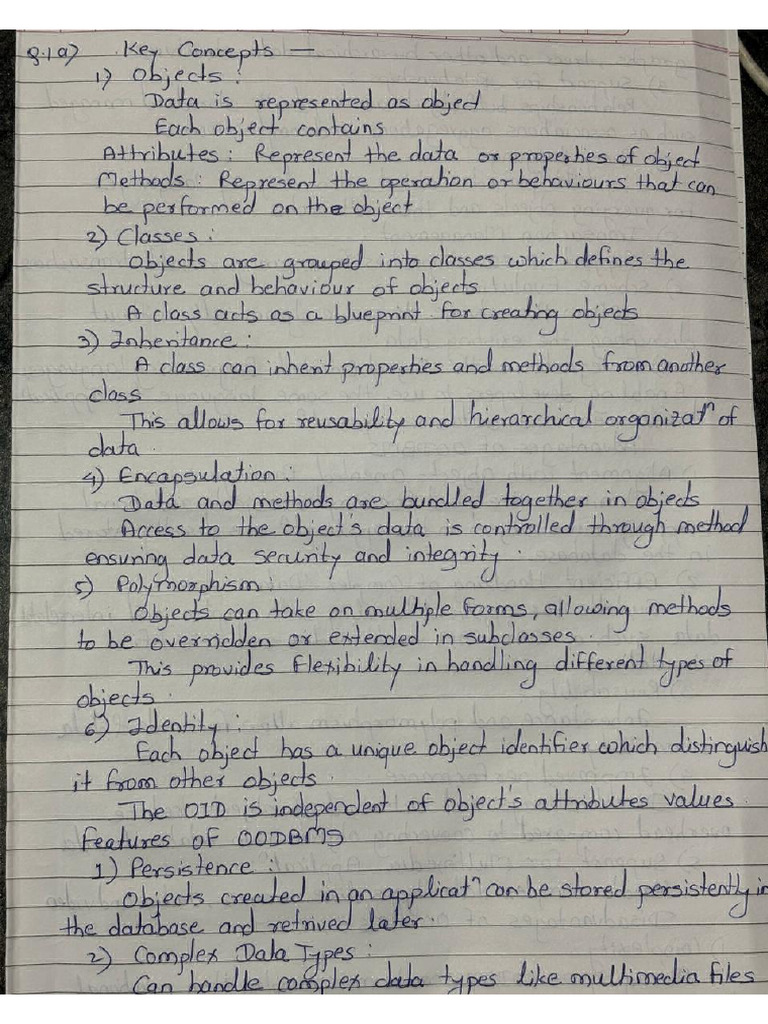 Q.1a) Key Concepts —
1) Objects :
Data is represented as object
Each object contains
Attributes : Represent the data or properties of object
Methods : Represent the operation or behaviours that can
be performed on the object
2) Classes :
Objects are grouped into classes which defines the
structure and behaviour of objects
A class acts as a blueprint for creating objects
3) Inheritance :
A class can inherit properties and methods from another
class
This allows for reusability and hierarchical organizatⁿ of
data.
4) Encapsulation :
Data and methods are bundled together in objects
Access to the object's data is controlled through method
ensuring data security and integrity.
5) Polymorphism :
Objects can take on multiple forms, allowing methods
to be overridden or extended in subclasses.
This provides flexibility in handling different types of
objects.
6) Identity :
Each object has a unique object identifier which distinguish
it from other objects.
The OID is independent of object's attributes values.
Features of OODBMS
1) Persistence :
Objects created in an applicatⁿ can be stored persistently in
the database and retrived later.
2) Complex Data Types :
Can handle complex data types like multimedia files